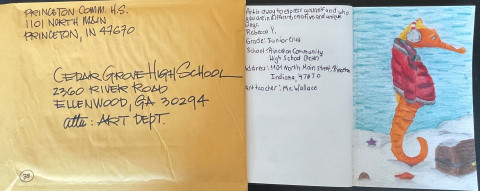 PRINCETON COMM. H.S.
1101 NORTH MAIN
PRINCETON, IN 47670
CEDAR GROVE HIGH SCHOOL
2360 RIVER ROAD
ELLENWOOD, GA 30294
attn: ART DEPT.
38
Art is a way to express yourself and who
you are in different, creative and unique
ways.
Rebecca Y.
Grade: Junior (11th)
School: Princeton Community
High School
Address: 1101 North Main Street, Princeton
Indiana, 47670
Art teacher: Mr. Wallace